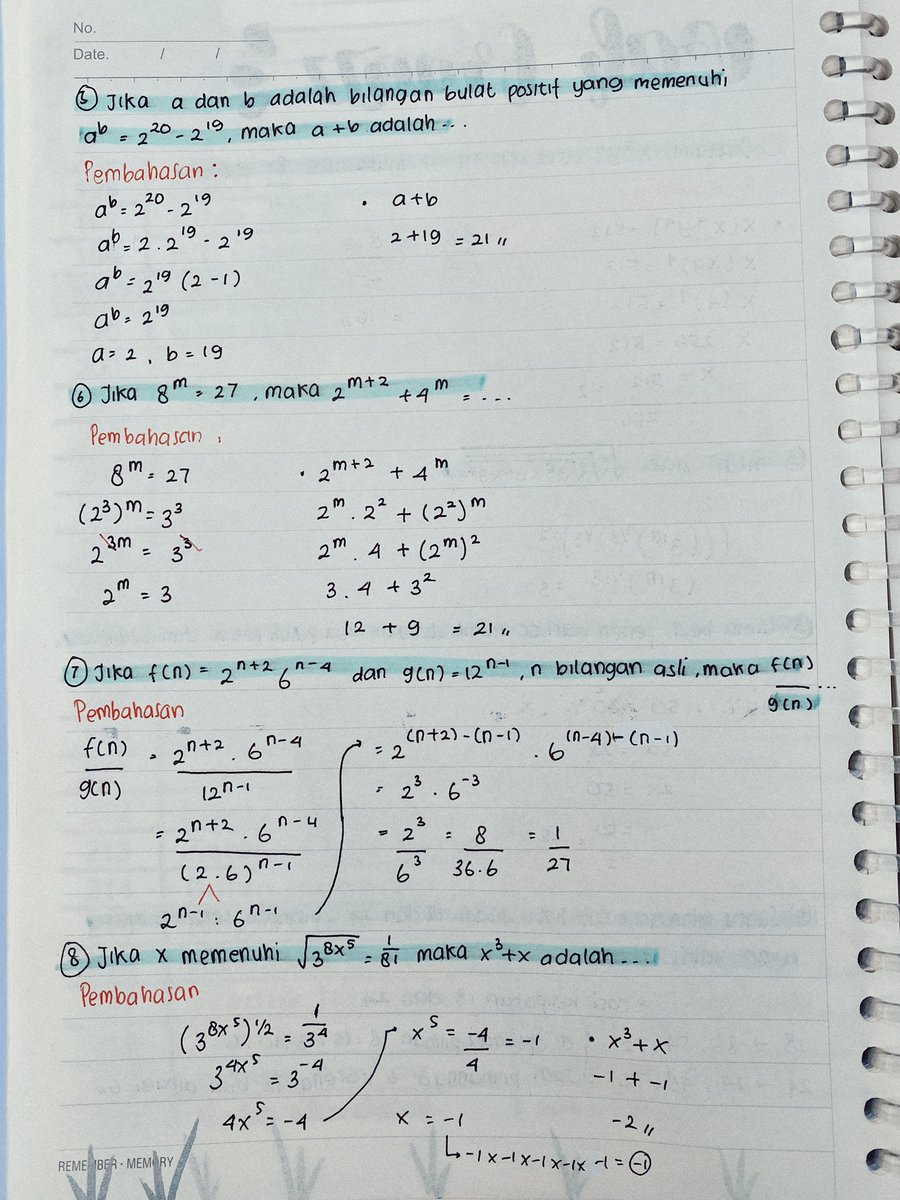 No.
Date. / /
⑤ Jika a dan b adalah bilangan bulat positif yang memenuhi
a^b = 2^20 - 2^19, maka a+b adalah...
Pembahasan :
a^b = 2^20 - 2^19
a^b = 2 . 2^19 - 2^19
a^b = 2^19 (2-1)
a^b = 2^19
a = 2 , b = 19
• a+b
2+19 = 21 //
⑥ Jika 8^m = 27 , maka 2^m+2 + 4^m = ...
Pembahasan :
8^m = 27
(2^3)^m = 3^3
2^3m = 3^3
2^m = 3
• 2^m+2 + 4^m
2^m . 2^2 + (2^2)^m
2^m . 4 + (2^m)^2
3 . 4 + 3^2
12 + 9 = 21 //
⑦ Jika f(n) = 2^n+2 6^n-4 dan g(n) = 12^n-1, n bilangan asli, maka f(n)/g(n) ...
Pembahasan
f(n)/g(n) = 2^n+2 . 6^n-4 / 12^n-1
= 2^n+2 . 6^n-4 / (2.6)^n-1
2^n-1 . 6^n-1
= 2^(n+2)-(n-1) . 6^(n-4)-(n-1)
= 2^3 . 6^-3
= 2^3/6^3 = 8/36.6 = 1/27
⑧ Jika x memenuhi √3^8x^5 = 1/81 maka x^3+x adalah ...
Pembahasan
(3^8x^5)^1/2 = 1/3^4
3^4x^5 = 3^-4
4x^5 = -4
x^5 = -4/4 = -1
x = -1
-1 x -1 x -1 x -1 x -1 = -1
• x^3+x
-1 + -1
-2 //
REMEMBER · MEMORY